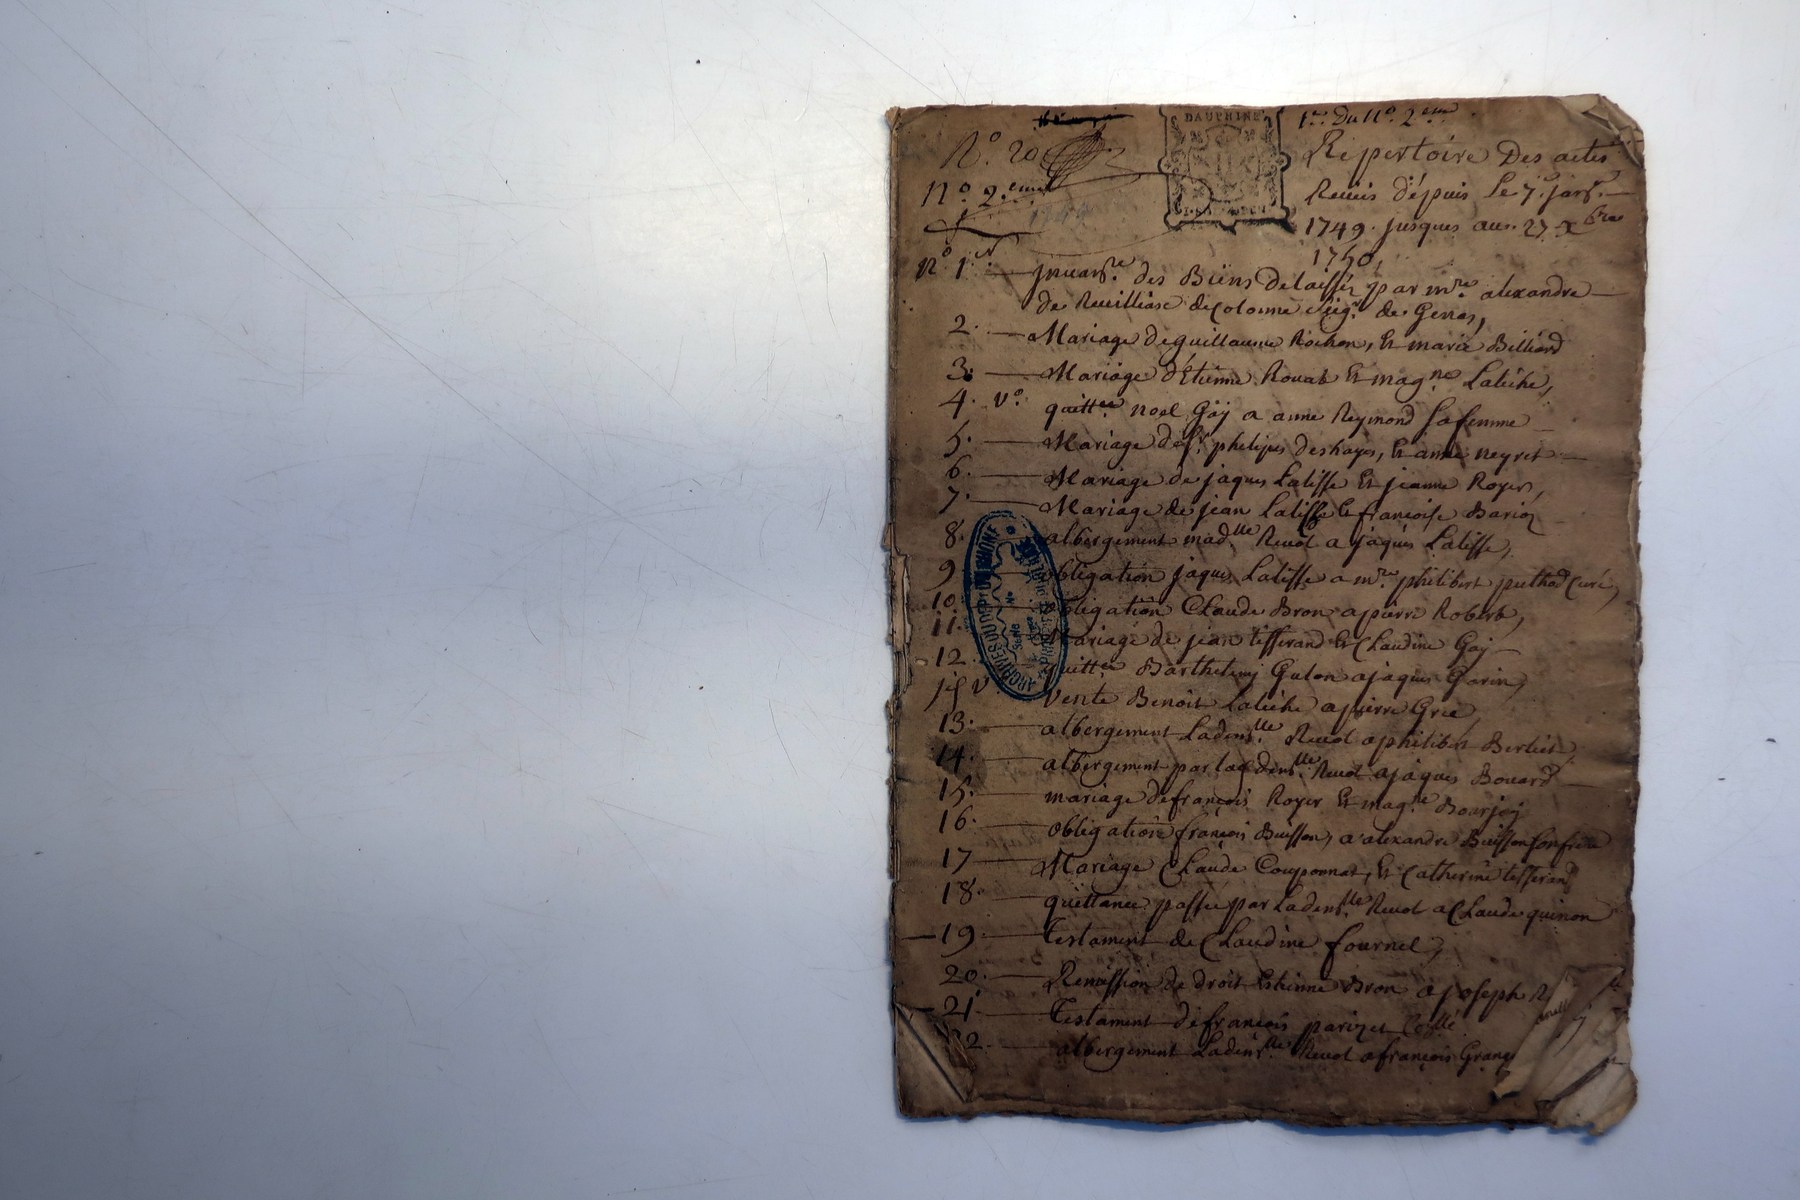 DAUPHINE
1er. Du N°. 2eme
N°. 20
Repertoire Des actes
N°. 2.eme
Receus dépuis Le 7e. janvr.
1749. jusques au 27 Xbre
1750,
N° 1er. jnvanre. des Biens delaissez par mre. alexandre
de decolonne seigr. de Genas,
2. Mariage deguillaume Rochon, et marie Billiard
3. Mariage d'Etienne Rouat et magne Latéche,
4. v°. quittce noel Goy a anne Reymond safemme
5. Mariage de sr. phelipes deshayes, et anne neyret
6. Mariage de jaques Latisse et jeanne Royer,
7. Mariage de jean Latisse et francoise
8. albergement madlle Revol a jaques Latisse,
9 obligation jaques Latisse a mre. philibert Curé,
10. obligation Claude Bron a pierre Robert,
11. Mariage de jean tisserand et Claudine Goy
12. quittce Barthelemy Gulon a jaques Gorin,
V Vente Benoit Latéche a pierre
13. albergement Lademlle. Revol a philibert Berliet
14. albergement par lad demlle. Revol a jaques Bouard
15. mariage defrançois Royer et magne Bourjoy
16. obligation françois Buisson, a alexandre Buisson sonfrere
17 Mariage Claude Couponnat, et Catherine tisserand
18. quittance passée par Lademlle. Revol a Claude quinon
19. Testament de Claudine fournel,
20. Remission de droit Estienne Bron a joseph
21. Testament defrancois parizet
albergement Lademlle. Revol a francois
ARCHIVES DU DEPT DU RHONE